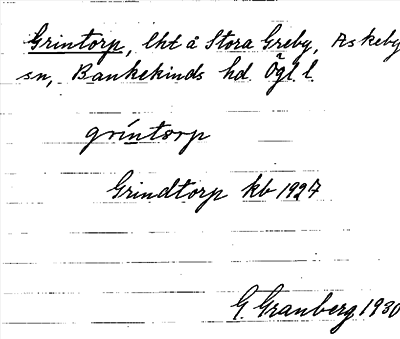 Grintorp, lht å Stora Greby, Askeby
sn, Bankekinds hd. Ögl. l.
grintorp
Grindtorp kb 1927
G. Granberg 1930